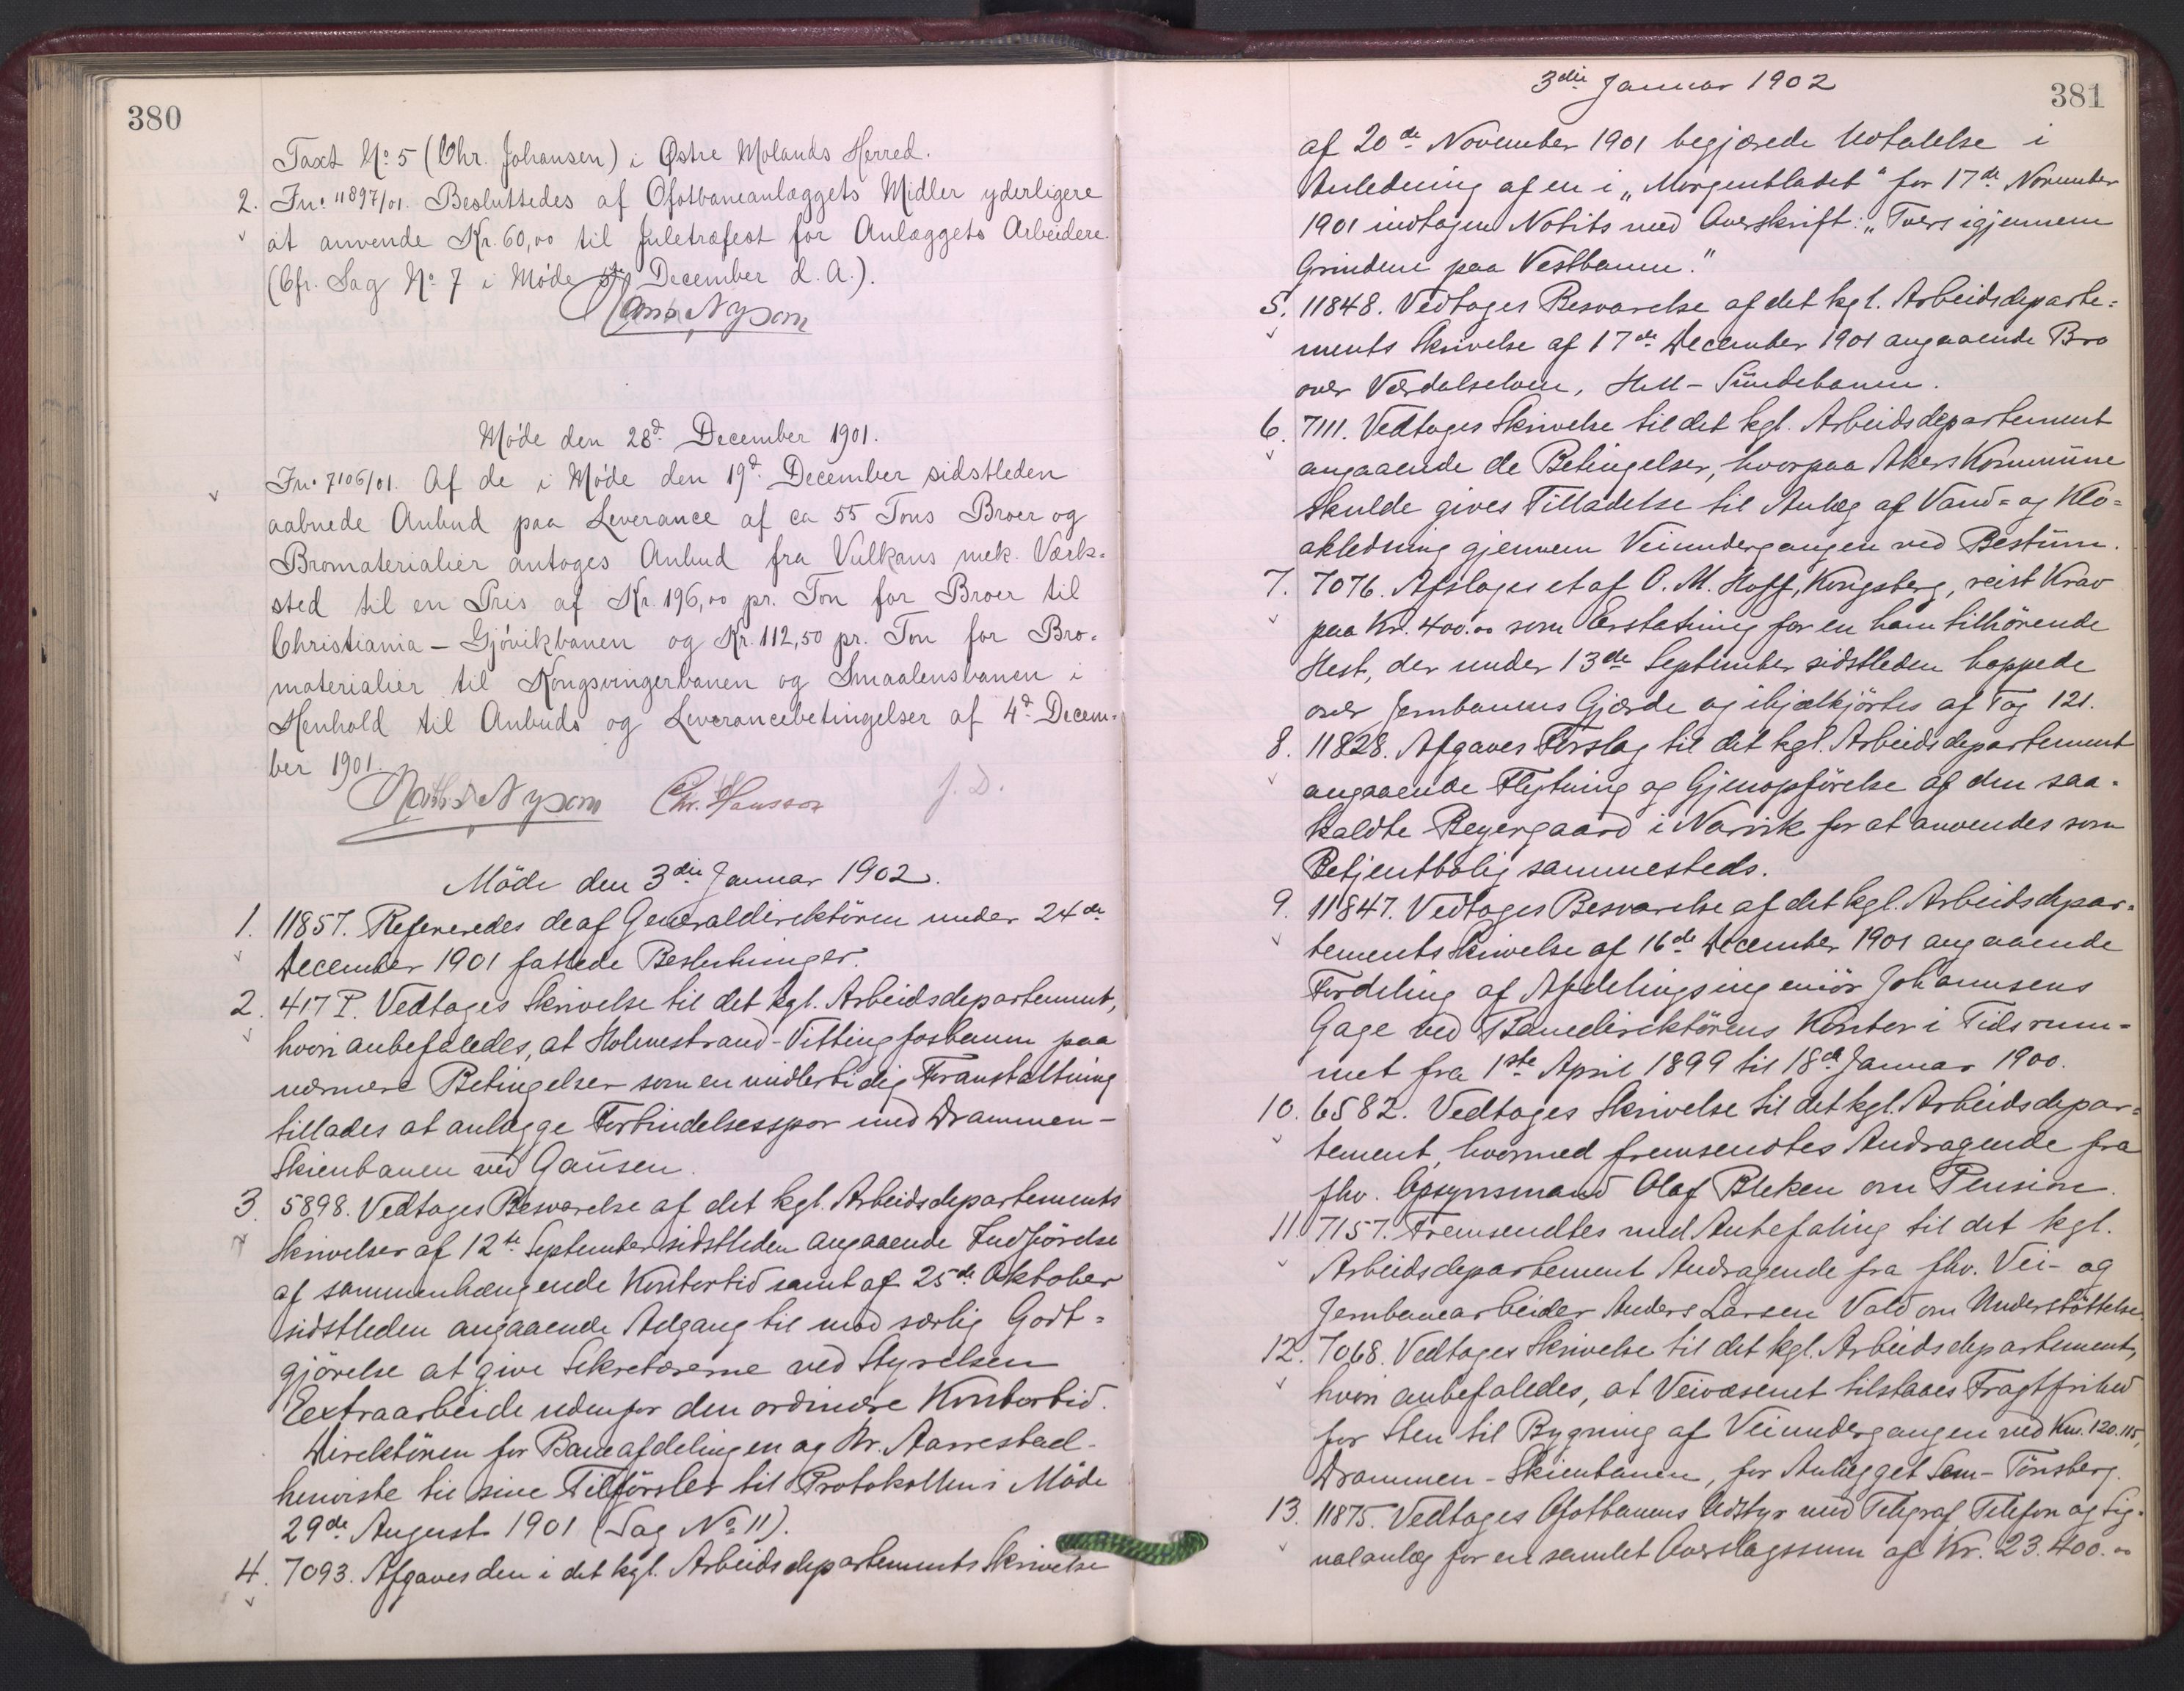 380
Taxt No 5 (Chr. Johansen) i Østre Molands Herred.
2. Jn: 11897/01. Besluttedes af Ofotbaneanlæggets Midler yderligere
at anvende Kr. 60,00 til Juletræfest for Anlæggets Arbeidere.
(Cfr. Sag No 7 i Møde December d. A.).
Møde den 28d December 1901.
Jn: 7106/01. Af de i Møde den 19d December sidstleden
aabnede Anbud paa Leverance af ca 55 Tons Broer og
Bromaterialier antoges Anbud fra Vulkans mek. Værk=
sted til en Pris af Kr. 196,00 pr. Ton for Broer til
Christiania – Gjøvikbanen og Kr. 112,50 pr. Ton for Bro=
materialier til Kongsvingerbanen og Smaalensbanen i
Henhold til Anbuds og Leverancebetingelser af 4d Decem=
ber 1901.
Chr. Hansson J. D.
Møde den 3die Januar 1902.
1. 11857. Refereredes de af Generaldirektøren under 24de
December 1901 fattede Beslutninger.
2. 417 P. Vedtoges Skrivelse til det kgl. Arbeidsdepartement,
hvori anbefaledes, at Holmestrand-Vittingfosbanen paa
nærmere Betingelser som en midlertidig Foranstaltning
tillades at anlægge Forbindelsesspor med Drammen-
Skienbanen ved Gausen.
3. 5898. Vedtoges Besvarelse af det kgl. Arbeidsdepartements
Skrivelser af 12te September sidstleden angaaende Indførelse
af sammenhængende Kontortid samt af 25de Oktober
sidstleden angaaende Adgang til mod særlig Godt=
gjörelse at give Sekretærerne ved Styrelsen
Eextraarbeide udenfor den ordinære Kontortid.
Direktören for Baneafdelingen og Hr. Aarrestad
henviste til sine Tilförsler til Protokollen i Möde
29de August 1901 (Sag No 11).
4. 7093. Afgaves den i det kgl. Arbeidsdepartements Skrivelse
3die Januar 1902
381
af 20de November 1901 begjærede Udtalelse i
Anledning af en i „Morgenbladet" for 17de November
1901 indtagen Notits med Overskrift: „Tvers igjennem
Grindene paa Vestbanen."
5. 11848. Vedtoges Besvarelse af det kgl. Arbeidsdeparte=
ments Skrivelse af 17de December 1901 angaaende Bro
over Værdalselven, Hell-Sundebanen.
6. 7111. Vedtoges Skrivelse til det kgl. Arbeidsdepartement
angaaende de Betingelser, hvorpaa Akers Kommune
skulde gives Tilladelse til Anlæg af Vand= og Klo=
akledning gjennem Veiundergangen ved Bestum.
7. 7076. Afsloges et af O. M. Hoff, Kongsberg, reist Krav
paa Kr. 400.00 som Erstatning for en ham tilhörende
Hest, der under 13de September sidstleden hoppede
over Jernbanens Gjærde og ihjælkjörtes af Tog 121.
8. 11828. Afgaves Forslag til det kgl. Arbeidsdepartement
angaaende Flytning og Gjenopförelse af den saa=
kaldte Beyergaard i Narvik for at anvendes som
Betjentbolig sammesteds.
9. 11847. Vedtoges Besvarelse af det kgl. Arbeidsdepar=
tements Skrivelse af 16de December 1901 angaaende
Fordeling af Afdelingsingeniör Johannsens
Gage ved Banedirektörens Kontor i Tidsrum=
met fra 1ste April 1899 til 18de Januar 1900.
10. 6582. Vedtoges Skrivelse til det kgl. Arbeidsdepar=
tement, hvormed fremsendtes Andragende fra
fhv. Opsynsmand Olaf Bleken om Pension.
11. 7157. Fremsendtes med Anbefaling til det kgl.
Arbeidsdepartement Andragende fra fhv. Vei- og
Jernbanearbeider Anders Larsen Vold om Understöttelse.
12. 7068. Vedtoges Skrivelse til det kgl. Arbeidsdepartement,
hvori anbefaledes, at Veivæsenet tilstaaes Fragtfrihed
for Sten til Bygning af Veiundergangen ved Km. 120.115,
Drammen-Skienbanen, for Anlægget Sem-Tönsberg.
13. 11875. Vedtoges Ofotbanens Udstyr med Telegraf Telefon og Sig=
nalanlæg for en samlet Overslagssum af Kr. 23.400.00